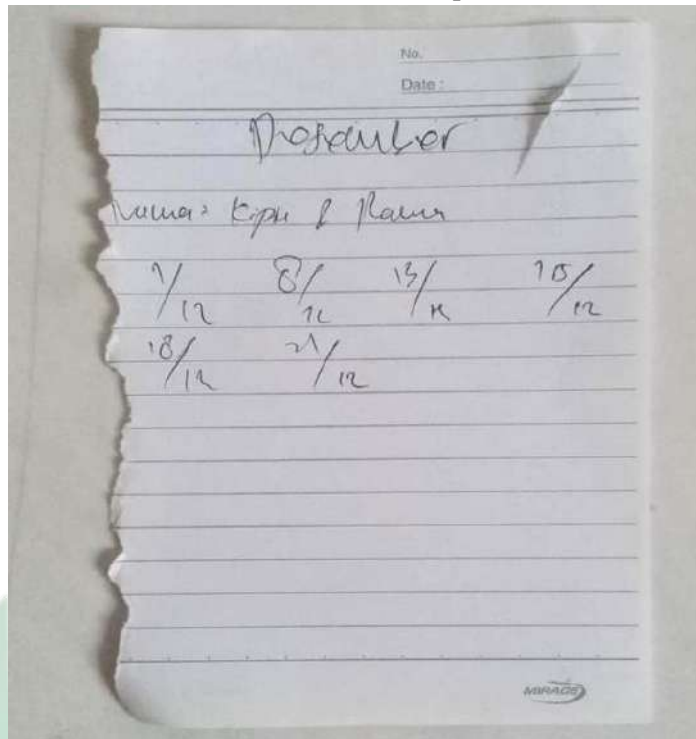 No.
Date :
Desember
Nama: Kipli & Raum
1/12 8/12 13/12 15/12
18/12 21/12
MIRAGE